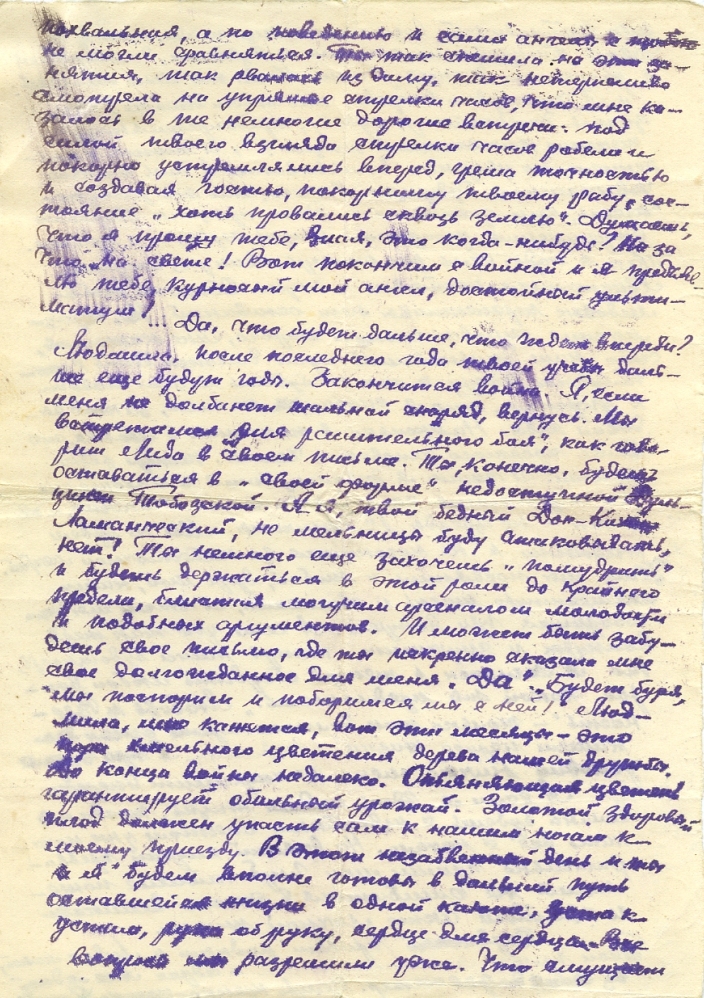 похвальния, а по поведению и сама ангелы с тобою
не могли сравняться. Ты так спешила на эти за-
нятия, так рвалась из дому, так нетерпеливо
смотрела на упрямые стрелки часов, что мне ка-
залось в те немногие дорогие встречи: под
силой твоего взгляда стрелки часов робели и
покорно устремлялись вперед, греша точностью
и создавая гостью, покорнишу твоему рабу, сос-
тояние „хоть провались сквозь землю“. Думаешь,
что я прощу тебе, Виля, это когда-нибудь? Ни за
что на свете! Вот покончим с войной и я предъяв-
лю тебе курносый мой ангел, достойный ульти-
матум!
Да, что будет дальше, что ждет впереди?
Людашка, после последнего года твоей учебы даль-
ше еще будут годы. Закончится война. Я, если
меня не долбанет шальной снаряд, вернусь. Мы
встретимся „для решительного боя“, как гово-
рит Лида в своем письме. Ты, конечно, будешь
оставаться в „своей форме“ недоступной Дуль-
цинеи Тобозской. А я, твой бедный Дон-Кихот
Ламанческий, не мельницы буду атаковывать,
нет! Ты немного еще захочешь „помудрить“
и будешь держаться в этой роли до крайнего
предела, блистая могучим арсеналом молодости
и подобных аргументов. И может быть забу-
дешь свое письмо, где ты искренно сказала мне
свое долгожданное для меня „Да“. „Будет буря,
мы поспорим и поборемся мы с ней!“ Люд-
мила, мне кажется, вот эти месяцы - это
пора хмельного цветения дерева нашей дружбы.
До конца войны недалеко. Опьяняющая цветень
гарантирует обильный урожай. Золотой здоровый
плод должен упасть сам к нашим ногам к
моему приезду. В этот незабвенный день и ты
и я будем вполне готовы в дальний путь
оставшейся жизни в одной каюте, уста к
устам, рука об руку, сердце для сердца. Все
вопросы мы разрешили уже. Что смущает